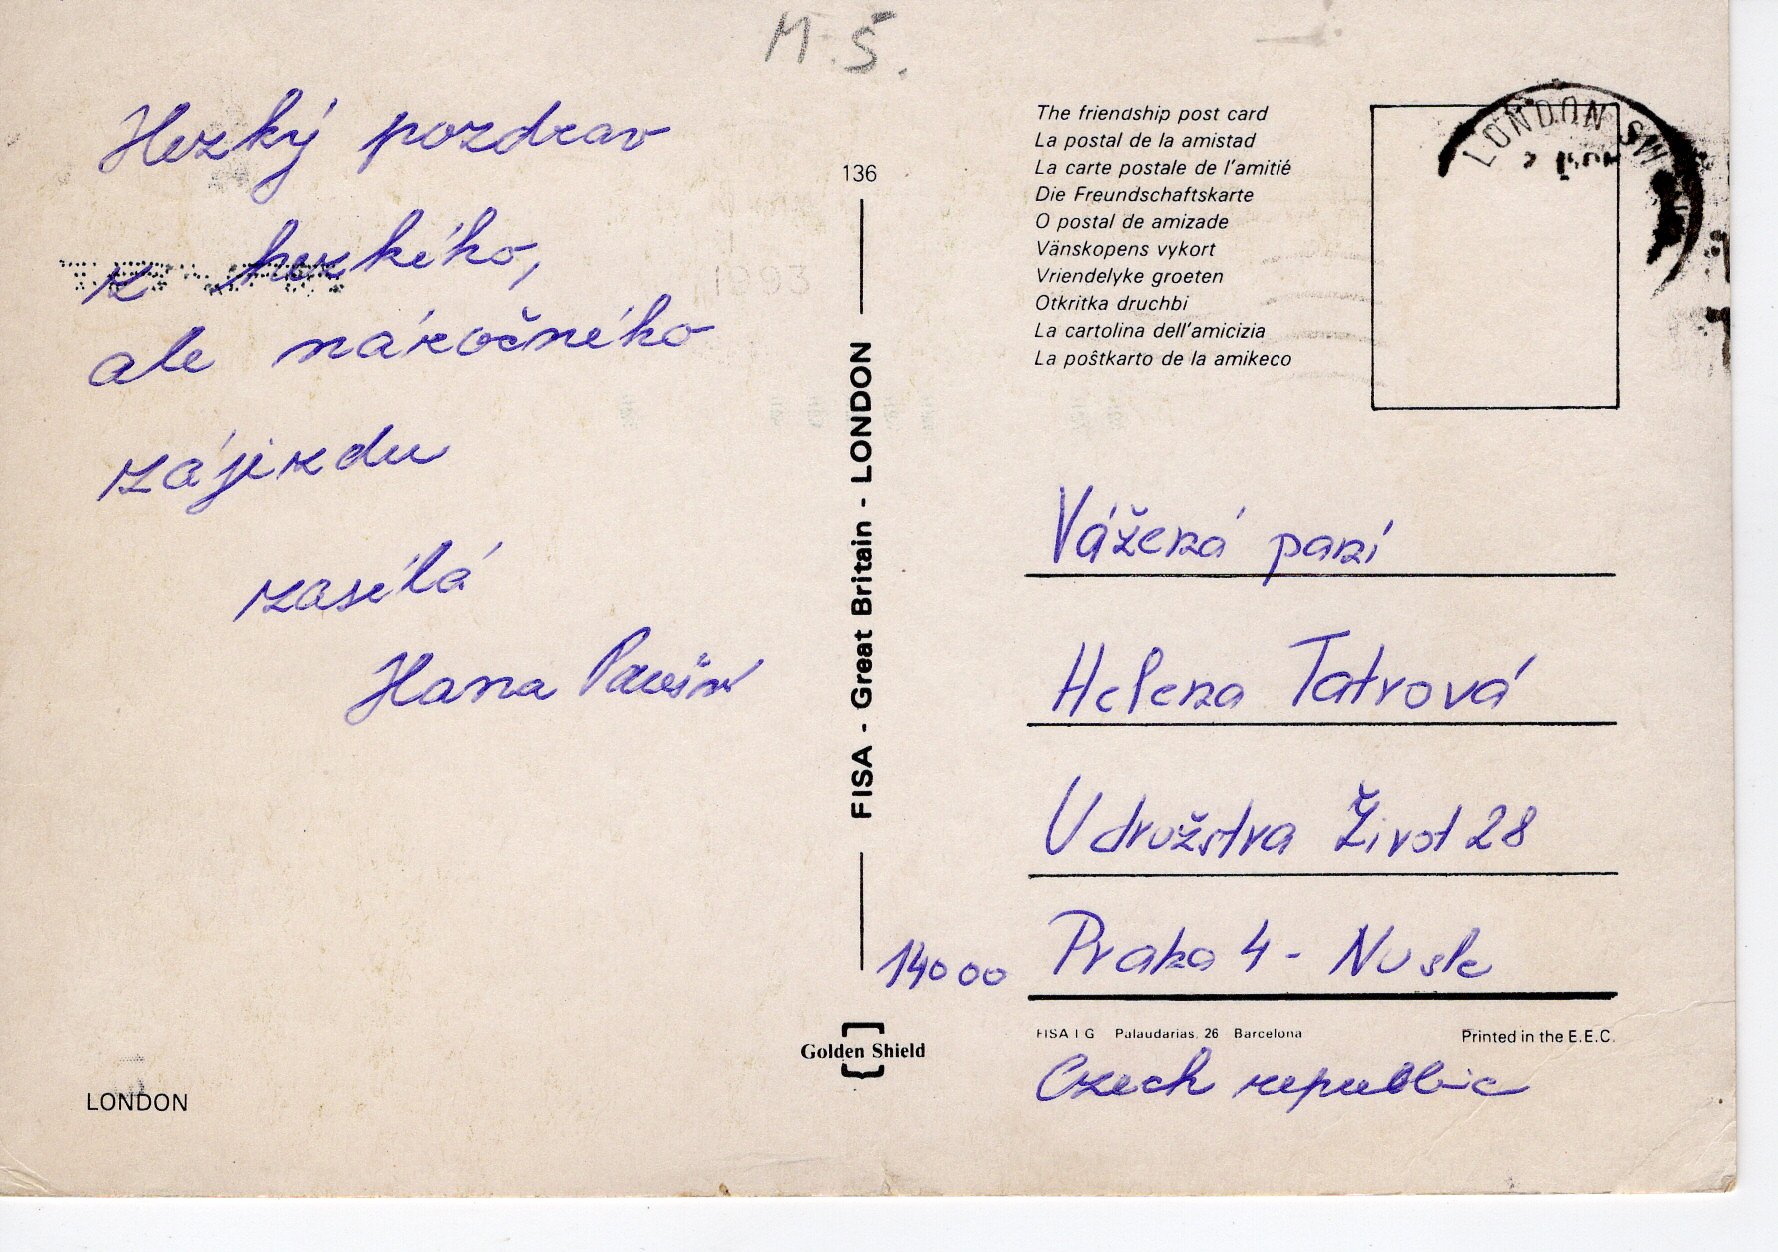 M.Š.
Hezký pozdrav
z hezkého,
ale náročného
zájezdu
zasílá
Hana
136
FISA - Great Britain - LONDON
Golden Shield
LONDON
The friendship post card
La postal de la amistad
La carte postale de l'amitié
Die Freundschaftskarte
O postal de amizade
Vänskopens vykort
Vriendelyke groeten
Otkritka druchbi
La cartolina dell'amicizia
La poŝtkarto de la amikeco
LONDON SW
1993
Vážená paní
Helena Tatrová
U družstva Život 28
14000 Praha 4 - Nusle
FISA I G Palaudarias, 26 Barcelona
Printed in the E.E.C.
Czech republic